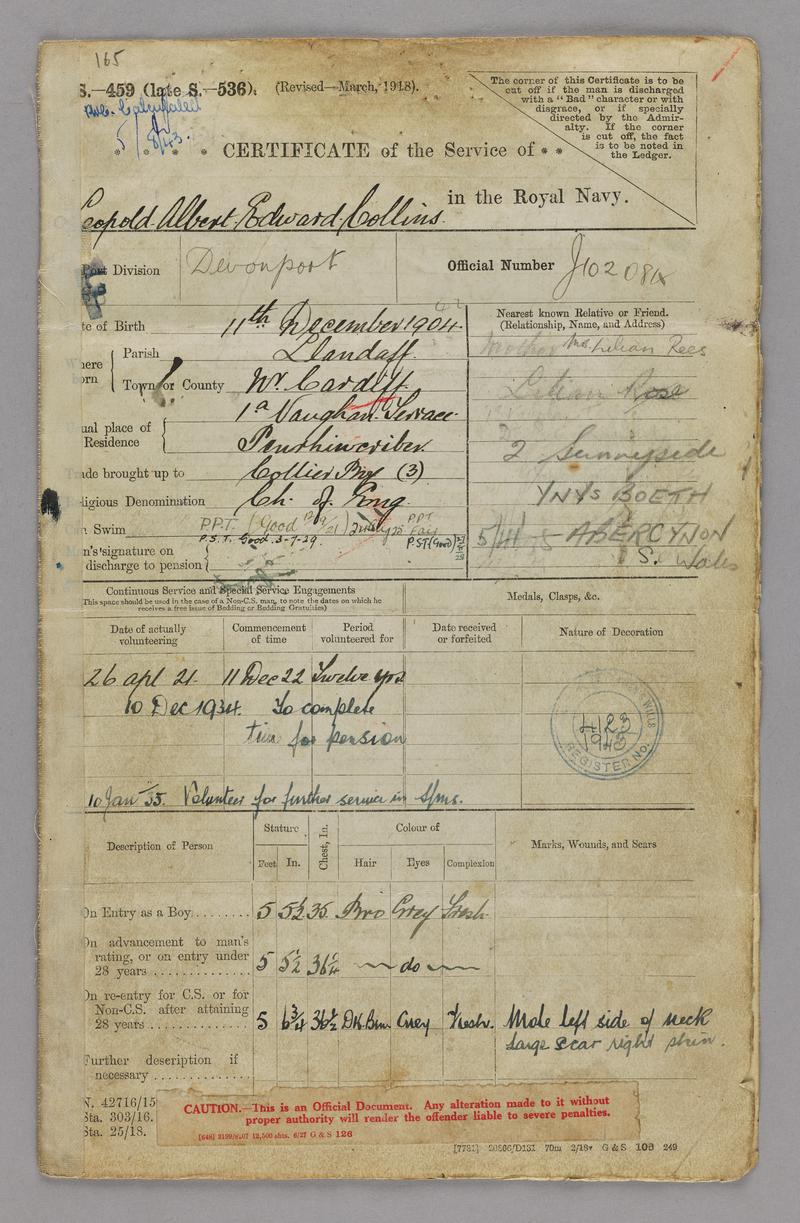 165
S.—459 (late S.—536). (Revised—March, 1918).
Calculated
The corner of this Certificate is to be
cut off if the man is discharged
with a "Bad" character or with
disgrace, or if specially
directed by the Admir-
alty. If the corner
is cut off, the fact
is to be noted in
the Ledger.
CERTIFICATE of the Service of
eopold Albert Edward Collins in the Royal Navy.
Port Division Devonport
Official Number J102081
te of Birth 11th December 1904
Nearest known Relative or Friend.
(Relationship, Name, and Address)
Mother Mrs Lilian Rees
here
orn
Parish Llandaff
Town or County Nr. Cardiff
ual place of
Residence
1a Vaughan Terrace
Penrhiwceiber
2 Sunnyside
YNYS BOETH
ABERCYNON
S. Wales
de brought up to Collier Boy (3)
ligious Denomination Ch. of Eng
n Swim P.P.T. (Good
P.S.T. Good. 3-7-29.
PPT Fair
PST (Good)
5/41
n's signature on
discharge to pension
Continuous Service and Special Service Engagements
(This space should be used in the case of a Non-C.S. man, to note the dates on which he
receives a free issue of Bedding or Bedding Gratuities)
Medals, Clasps, &c.
Date of actually
volunteering
Commencement
of time
Period
volunteered for
Date received
or forfeited
Nature of Decoration
26 apl 21. 11 Dec 22 Twelve yrs
10 Dec 1934. To complete
time for pension
WILLS
4123
1943
REGISTER NO.
10 Jan 35. Volunteer for further service in S/ms.
Description of Person
Stature
Feet In.
Chest, In.
Colour of
Hair Eyes Complexion
Marks, Wounds, and Scars
On Entry as a Boy........ 5 5½ 35 Bro Grey Fresh
On advancement to man's
rating, or on entry under
28 years ............. 5 5½ 36¼ — do —
On re-entry for C.S. or for
Non-C.S. after attaining
28 years ............. 5 6¾ 36½ DK Brn Grey Fresh. Mole left side of neck
Large scar right shin.
Further description if
necessary .............
N. 42716/15
Sta. 303/16.
Sta. 25/18.
CAUTION.—This is an Official Document. Any alteration made to it without
proper authority will render the offender liable to severe penalties.
12,500 shts. 6/27 G & S 126
[7781] 70m 2/18 G & S 108 249